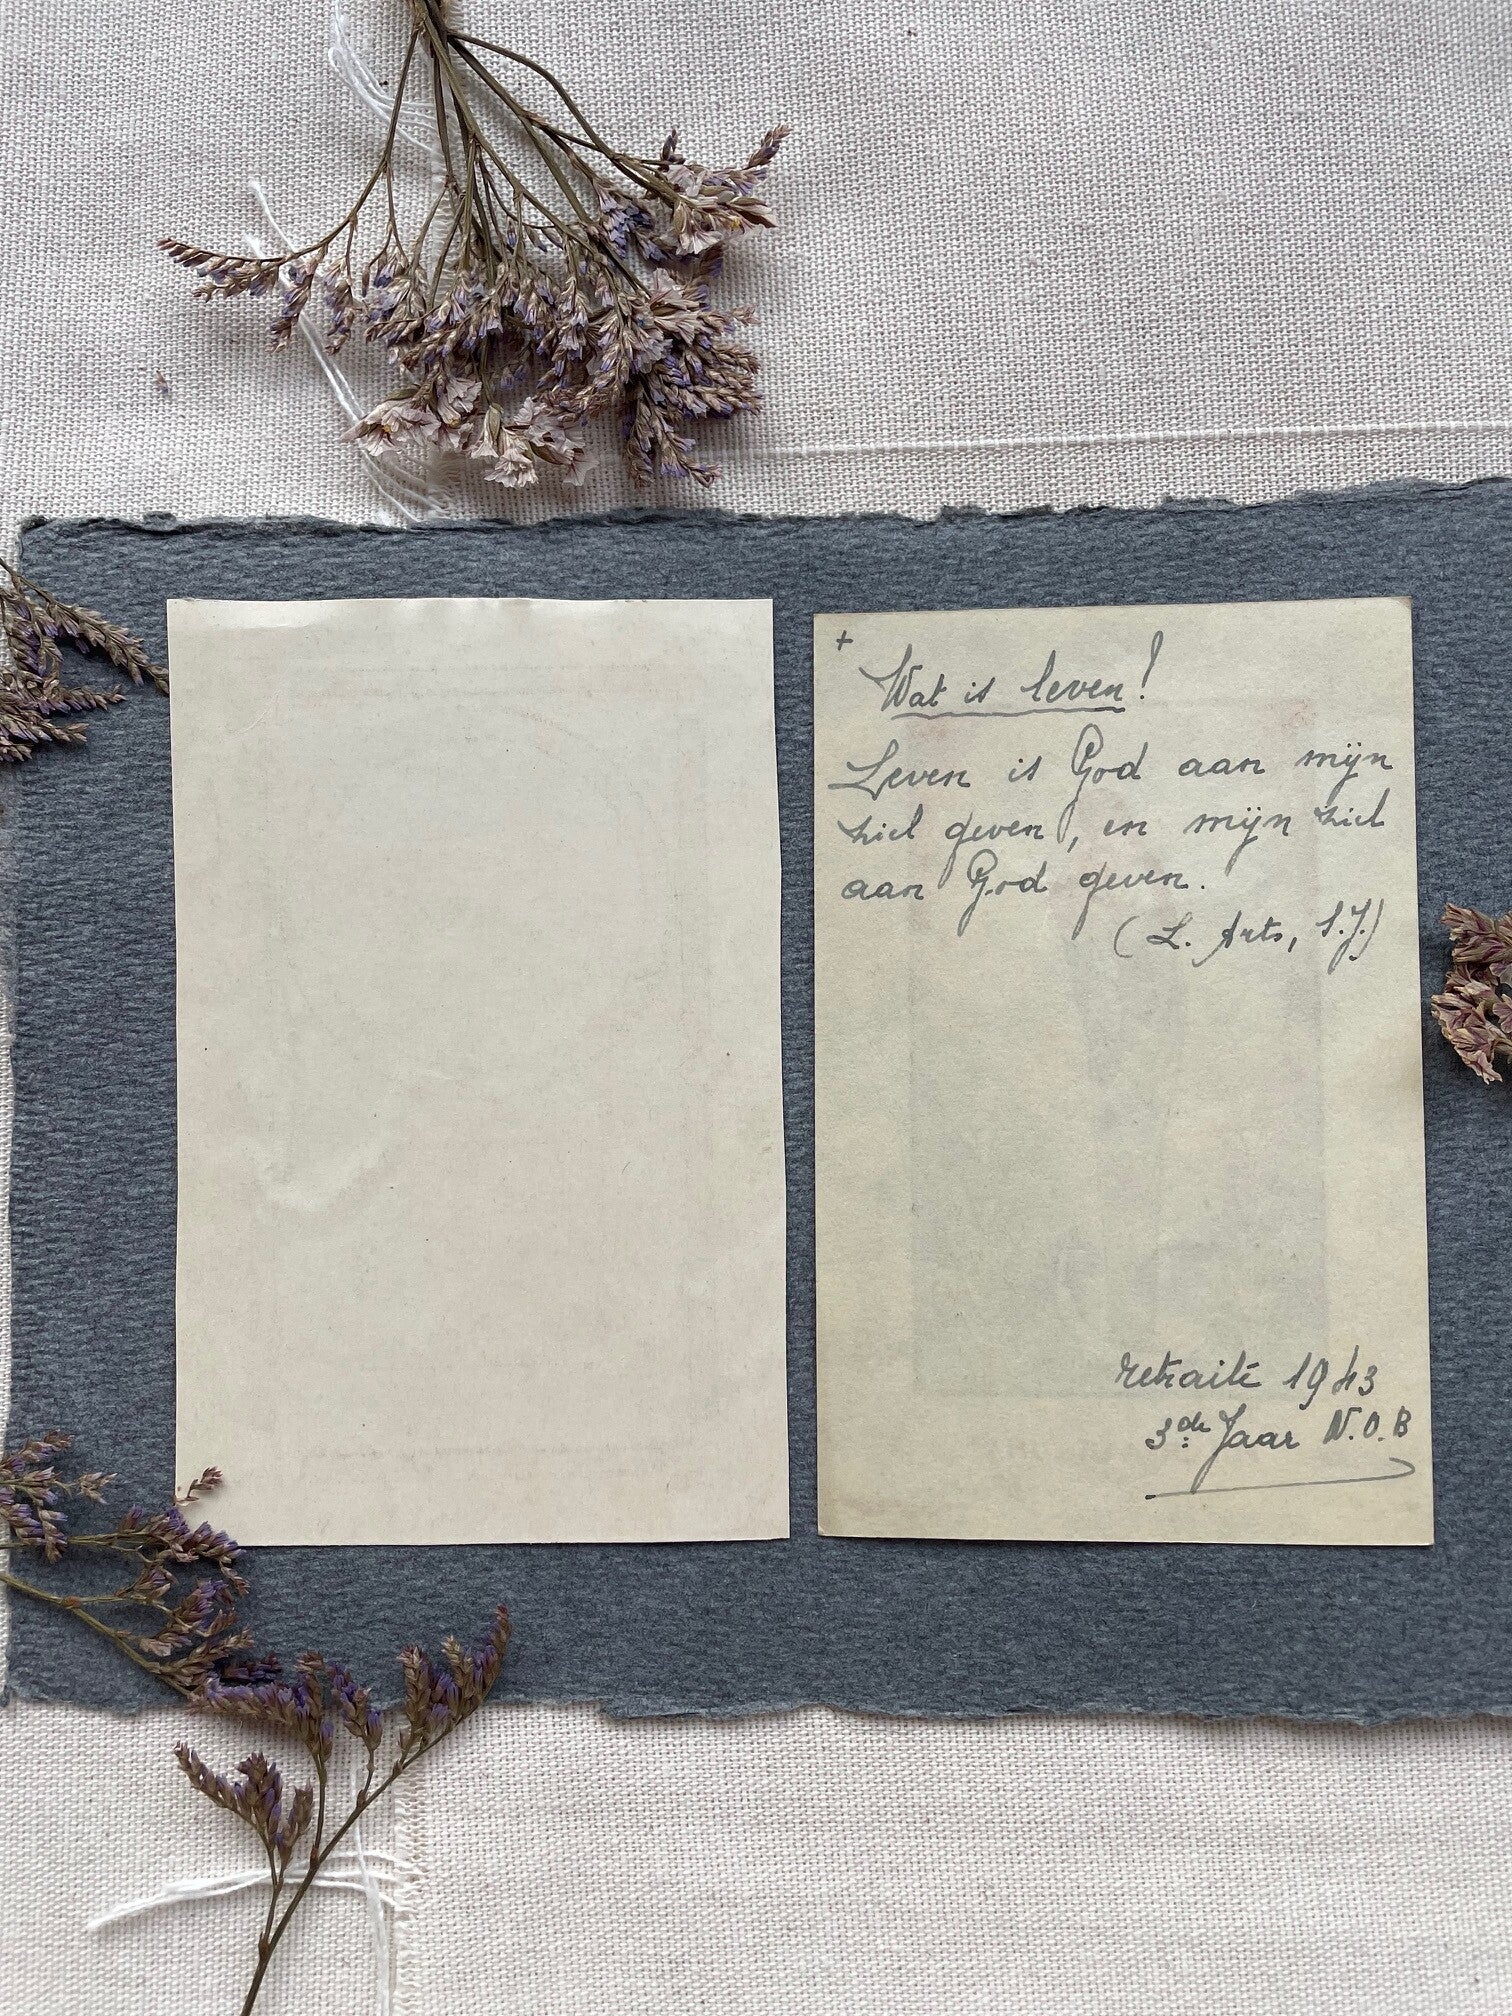 +
Wat is leven!
Leven is God aan mijn
ziel geven, en mijn ziel
aan God geven.
(L. Arts, S.J.)
retraite 1943
3de Jaar N.O.B